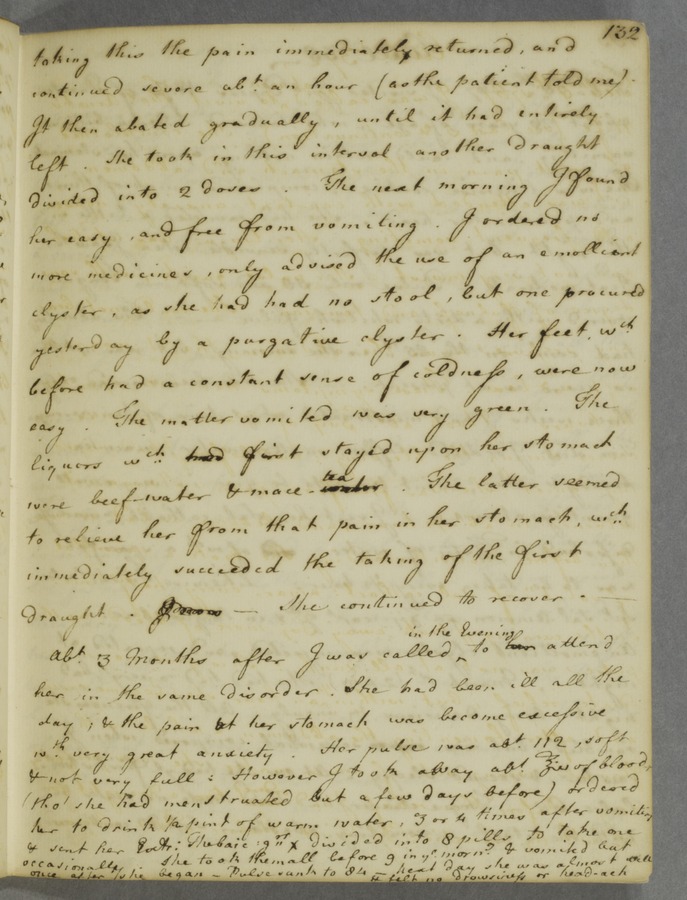 132
taking this the pain immediately returned, and
continued severe abt. an hour (as the patient told me).
It then abated gradually, until it had entirely
left. She took in this interval another draught
divided into 2 doses. The next morning I found
her easy, and free from vomiting. I ordered no
more medicines, only advised the use of an emollient
clyster, as she had had no stool, but one procured
yesterday by a purgative clyster. Her feet, wch.
before had a constant sense of coldness, were now
easy. The matter vomited was very green. The
liquors wch. had first stayed upon her stomach
were beef-water & mace-tea. The latter seemed
to relieve her from that pain in her stomach, wch.
immediately succeeded the taking of the first
draught. — She continued to recover. —
Abt. 3 Months after I was called in the Evening to attend
her in the same disorder. She had been ill all the
day; & the pain at her stomach was become excessive
wth. very great anxiety. Her pulse was abt. 112, soft
& not very full: However I took away abt. of blood,
(tho' she had menstruated but a few days before) ordered
her to drink ½ pint of warm water, 3 or 4 times after vomiting
& sent her Extr: Thebaic: divided into 8 pills, to take one
occasionally. She took them all before 9 in ye. morng. & vomited but
once after she began — Pulse sunk to 84 — next day she was almost well
& felt no drowsiness or head-ach